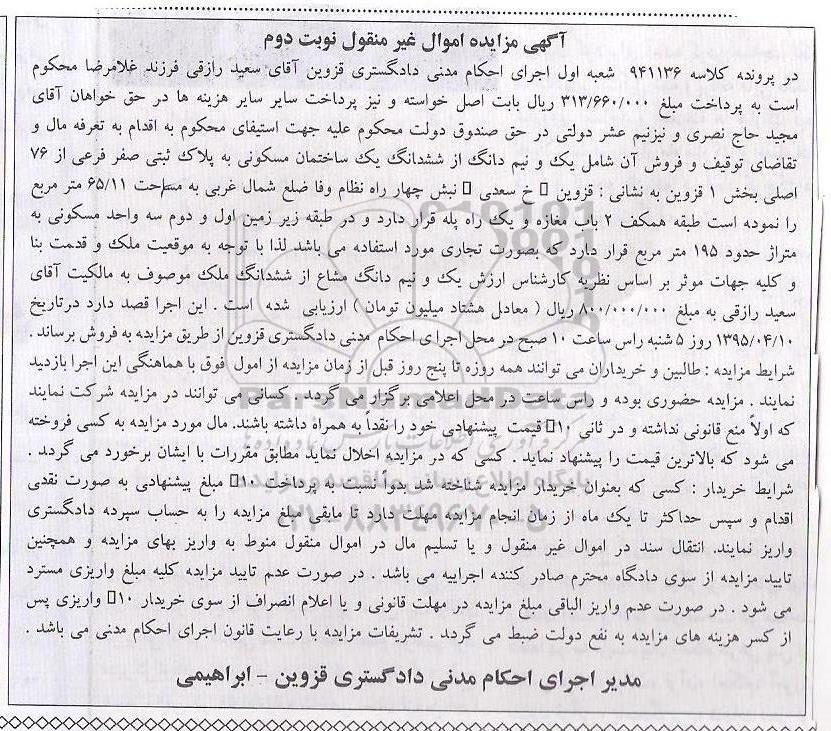 آگهی مزایده اموال غیر منقول نوبت دوم
در پرونده کلاسه ۹۴۱۱۳۶ شعبه اول اجرای احکام مدنی دادگستری قزوین آقای سعید رازقی فرزند غلامرضا محکوم
است به پرداخت مبلغ ۳۱۳/۶۶۰/۰۰۰ ریال بابت اصل خواسته و نیز پرداخت سایر سایر هزینه ها در حق خواهان آقای
مجید حاج نصری و نیزنیم عشر دولتی در حق صندوق دولت محکوم علیه جهت استیفای محکوم به اقدام به تعرفه مال و
تقاضای توقیف و فروش آن شامل یک و نیم دانگ از ششدانگ یک ساختمان مسکونی به پلاک ثبتی صفر فرعی از ۷۶
اصلی بخش ۱ قزوین به نشانی : قزوین خ سعدی نبش چهار راه نظام وفا ضلع شمال غربی به مساحت ۶۵/۱۱ متر مربع
را نموده است طبقه همکف ۲ باب مغازه و یک راه پله قرار دارد و در طبقه زیر زمین اول و دوم سه واحد مسکونی به
متراژ حدود ۱۹۵ متر مربع قرار دارد که بصورت تجاری مورد استفاده می باشد لذا با توجه به موقعیت ملک و قدمت بنا
و کلیه جهات موثر بر اساس نظریه کارشناس ارزش یک و نیم دانگ مشاع از ششدانگ ملک موصوف به مالکیت آقای
سعید رازقی به مبلغ ۸۰۰/۰۰۰/۰۰۰ ریال ( معادل هشتاد میلیون تومان ) ارزیابی شده است . این اجرا قصد دارد درتاریخ
۱۳۹۵/۰۴/۱۰ روز ۵ شنبه راس ساعت ۱۰ صبح در محل اجرای احکام مدنی دادگستری قزوین از طریق مزایده به فروش برساند .
شرایط مزایده : طالبین و خریداران می توانند همه روزه تا پنج روز قبل از زمان مزایده از امول فوق با هماهنگی این اجرا بازدید
نمایند . مزایده حضوری بوده و راس ساعت در محل اعلامی برگزار می گردد . کسانی می توانند در مزایده شرکت نمایند
که اولاً منع قانونی نداشته و در ثانی ۱۰ قیمت پیشنهادی خود را نقداً به همراه داشته باشند. مال مورد مزایده به کسی فروخته
می شود که بالاترین قیمت را پیشنهاد نماید . کسی که در مزایده اخلال نماید مطابق مقررات با ایشان برخورد می گردد .
شرایط خریدار : کسی که بعنوان خریدار مزایده شناخته شد بدواً نسبت به پرداخت ۱۰ مبلغ پیشنهادی به صورت نقدی
اقدام و سپس حداکثر تا یک ماه از زمان انجام مزایده مهلت دارد تا مابقی مبلغ مزایده را به حساب سپرده دادگستری
واریز نمایند. انتقال سند در اموال غیر منقول و یا تسلیم مال در اموال منقول منوط به واریز بهای مزایده و همچنین
تایید مزایده از سوی دادگاه محترم صادر کننده اجراییه می باشد . در صورت عدم تایید مزایده کلیه مبلغ واریزی مسترد
می شود . در صورت عدم واریز الباقی مبلغ مزایده در مهلت قانونی و یا اعلام انصراف از سوی خریدار ۱۰ واریزی پس
از کسر هزینه های مزایده به نفع دولت ضبط می گردد . تشریفات مزایده با رعایت قانون اجرای احکام مدنی می باشد .
مدیر اجرای احکام مدنی دادگستری قزوین - ابراهیمی
ParsNamadData
۰۲۱-۸۸۳۴۹۶۷۰-۵